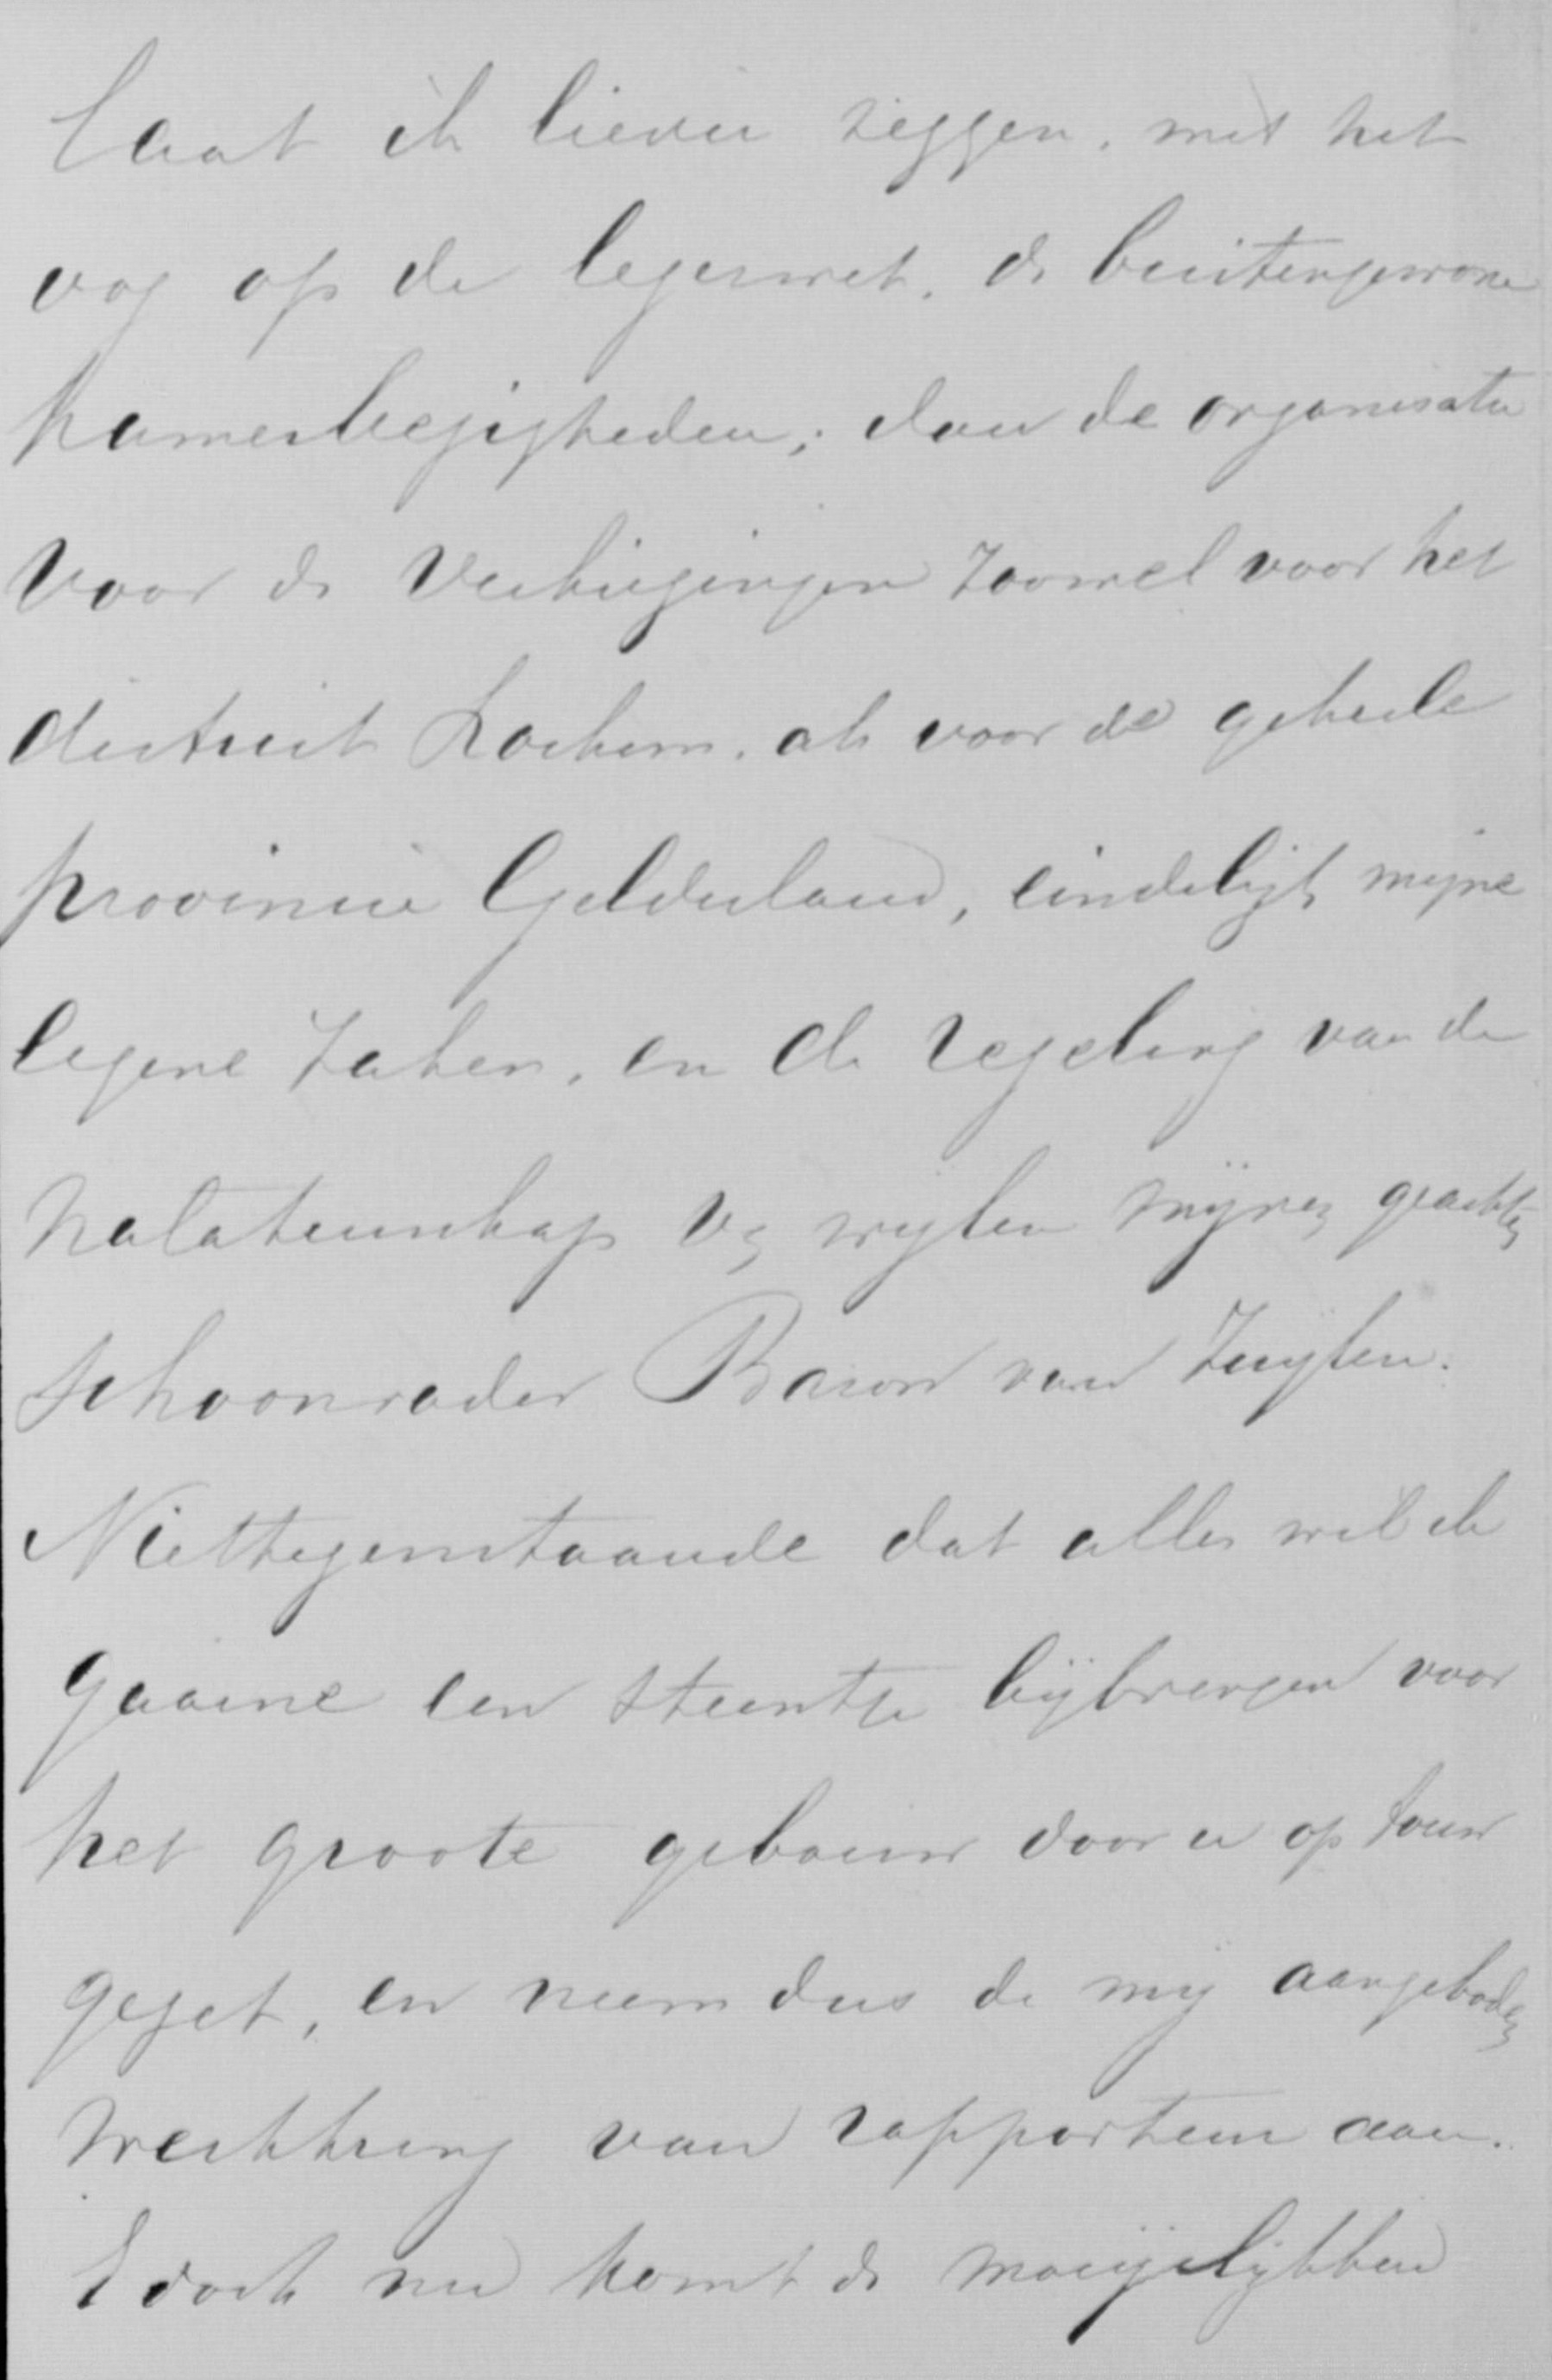 laat ik liever zeggen, met het
oog op de legerwet, de buitengewone
kamerbezigheden; dan de organisatie
voor de verkiezingen zoowel voor het
district Lochem, als voor de geheele
provincie Gelderland, eindelijk mijne
eigene zaken, en de regeling van de
nalatenschap v. wijlen mijnen geachten
schoonvader Baron van Zuylen.
Niettegenstaande dat alles wil ik
gaarne een steentje bijbrengen voor
het groote gebouw door u op touw
gezet, en neem dus de mij aangeboden
werkkring van rapporteur aan.
Edoch nu komt de moeijelijkheid